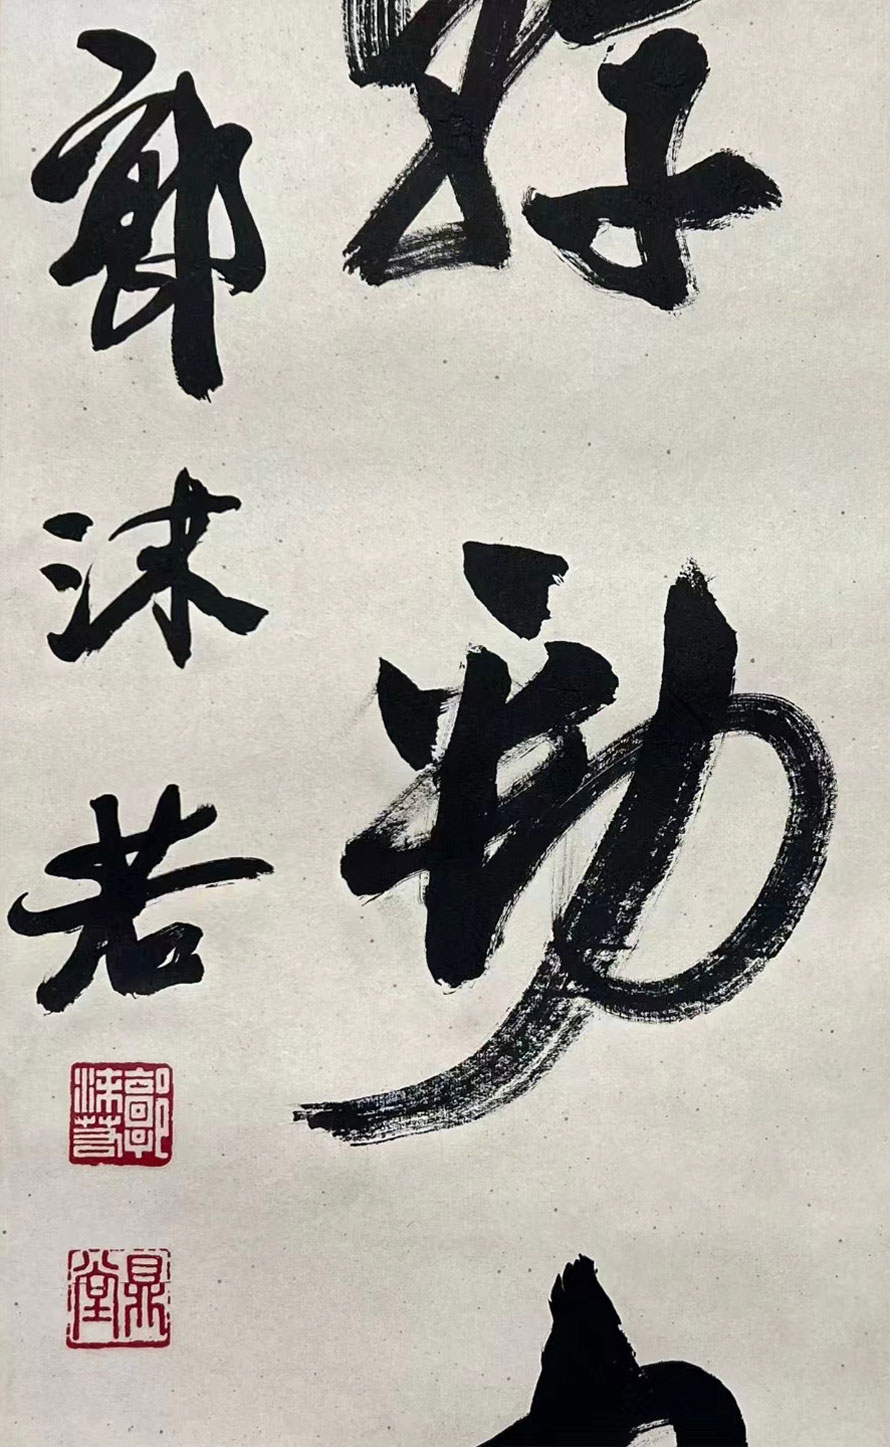 好
郭沫若
郭沫若
鼎堂